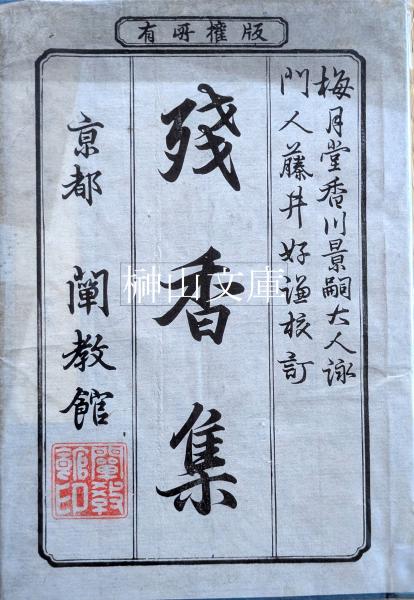 版權所有
梅月堂香川景嗣大人詠
門人藤井好謙校訂
殘香集
京都 闡教館
闡教館印
榊山文庫